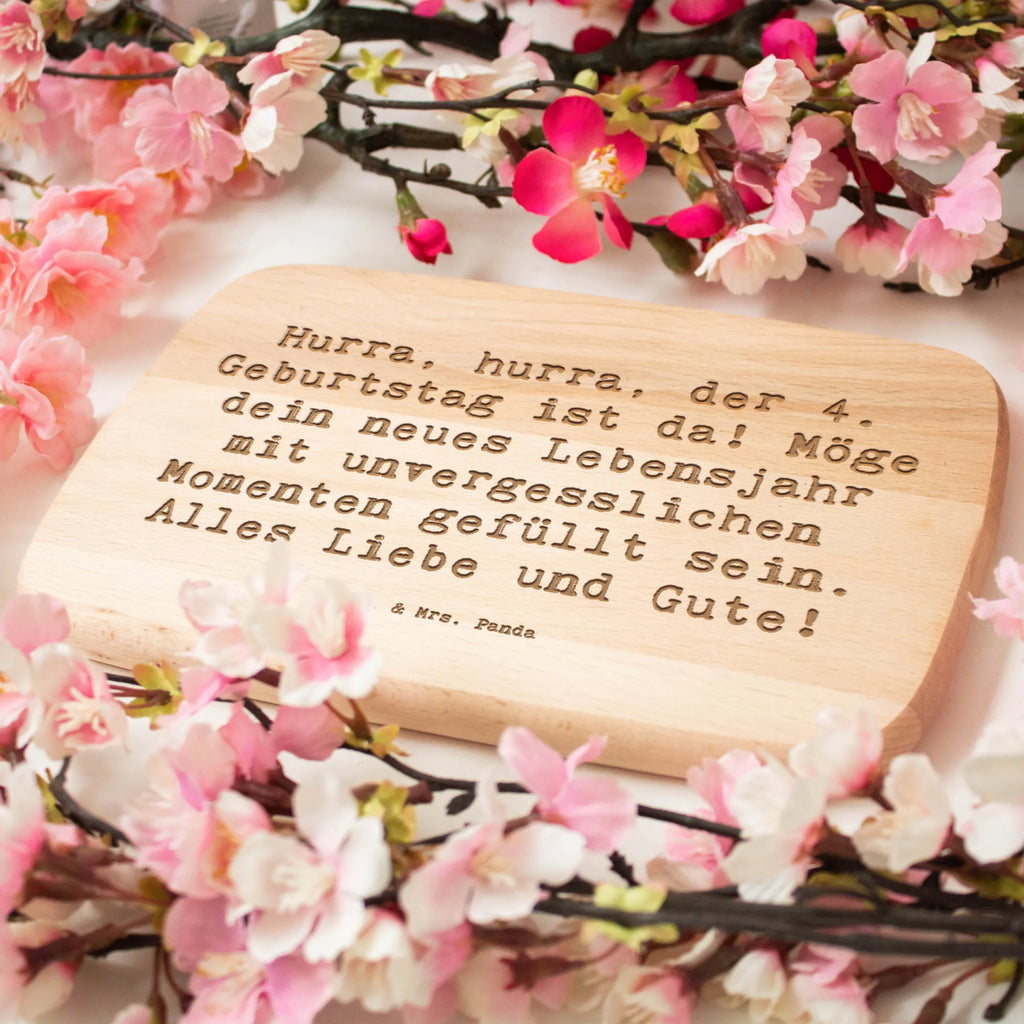 Hurra, hurra, der 4.
Geburtstag ist da! Möge
dein neues Lebensjahr
mit unvergesslichen
Momenten gefüllt sein.
Alles Liebe und Gute!
& Mrs. Panda